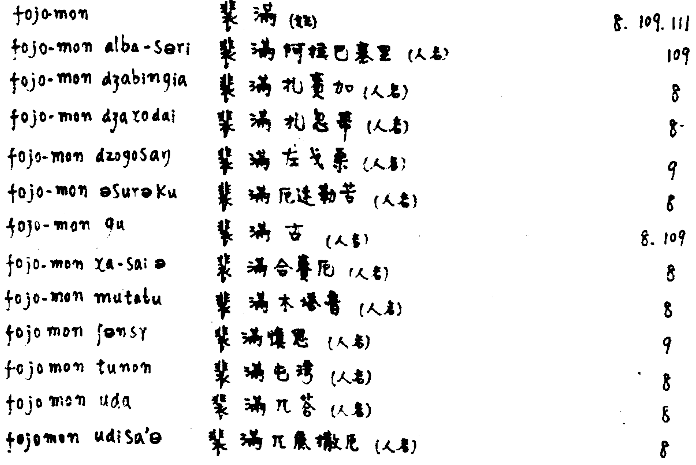 fojo-mon 裴 滿 (姓) 8. 109. 111
fojo-mon alba-səri 裴 滿 阿拉巴塞里 (人名) 109
fojo-mon dʒabingia 裴 滿 扎賽加 (人名) 8
fojo-mon dʒaxodai 裴 滿 扎忽帶 (人名) 8
fojo-mon dzogosaŋ 裴 滿 左戈桑 (人名) 9
fojo-mon əsurəku 裴 滿 厄迭勒苦 (人名) 8
fojo-mon gu 裴 滿 古 (人名) 8. 109
fojo-mon xa-sai ə 裴 滿 合賽厄 (人名) 8
fojo-mon mutalu 裴 滿 木塔魯 (人名) 8
fojo mon ʃənsy 裴 滿 慎思 (人名) 9
fojo mon tunon 裴 滿 屯灣 (人名) 8
fojo mon uda 裴 滿 兀答 (人名) 8
fojomon udisa'ə 裴 滿 兀底撒厄 (人名) 8